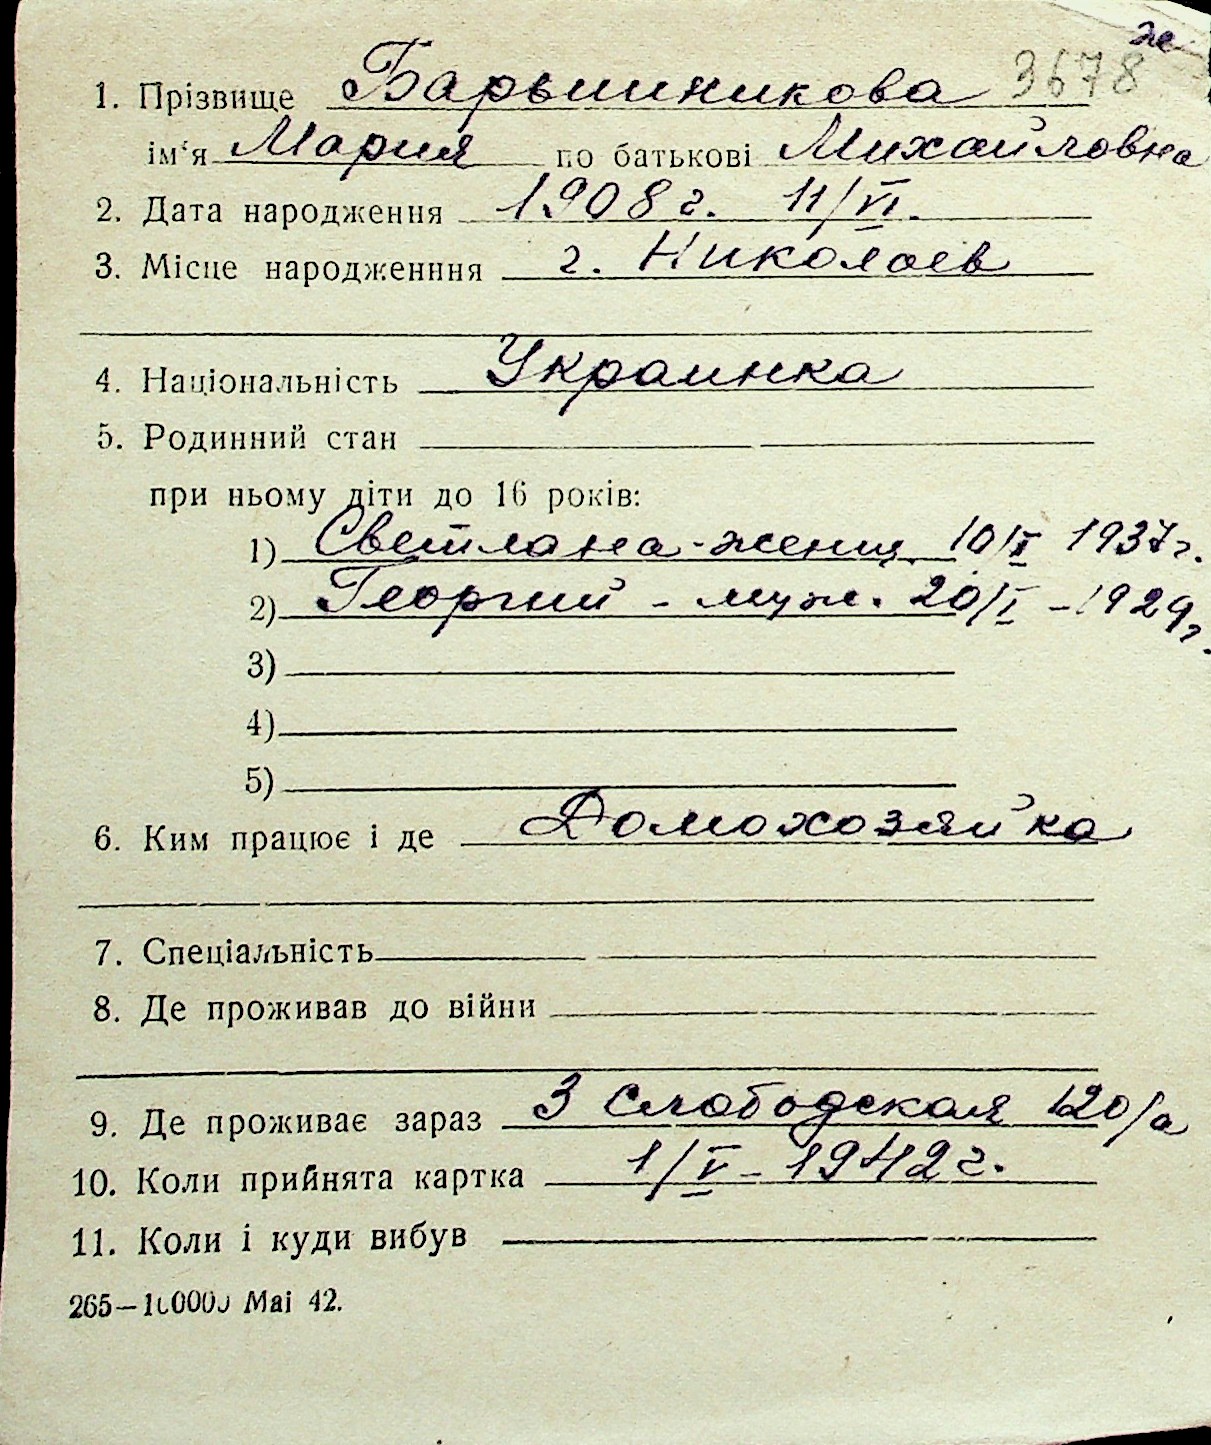 же
1. Прізвище Барышникова 3678
ім‘я Мария по батькові Михайловна
2. Дата народження 1908 г. 11/VI.
3. Місце народженння г. Николаев
4. Національність Украинка
5. Родинний стан
при ньому діти до 16 років:
1) Светлана - женщ. 10/I 1937 г.
2) Георгий - муж. 20/I - 1929 г.
3)
4)
5)
6. Ким працює і де Домохозяйка
7. Спеціальність
8. Де проживав до війни
9. Де проживає зараз 3 Слободская 120/а
10. Коли прийнята картка 1/V - 1942 г.
11. Коли і куди вибув
265—100000 Mai 42.